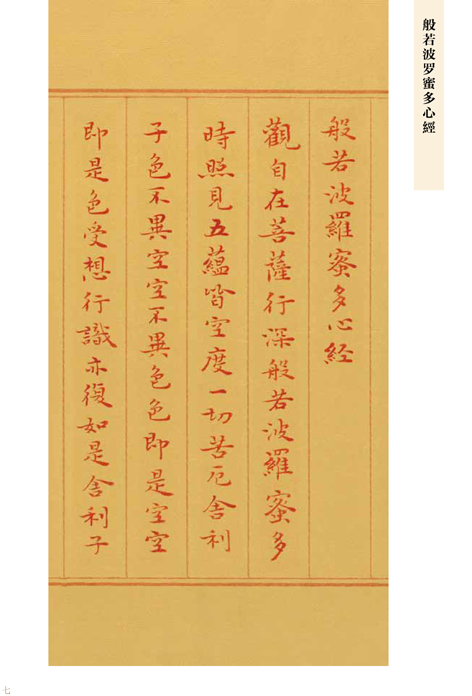 般若波罗蜜多心經
般若波羅蜜多心经
觀自在菩薩行深般若波羅蜜多
時照見五蘊皆空度一切苦厄舍利
子色不異空空不異色色即是空空
即是色受想行識亦復如是舍利子
七